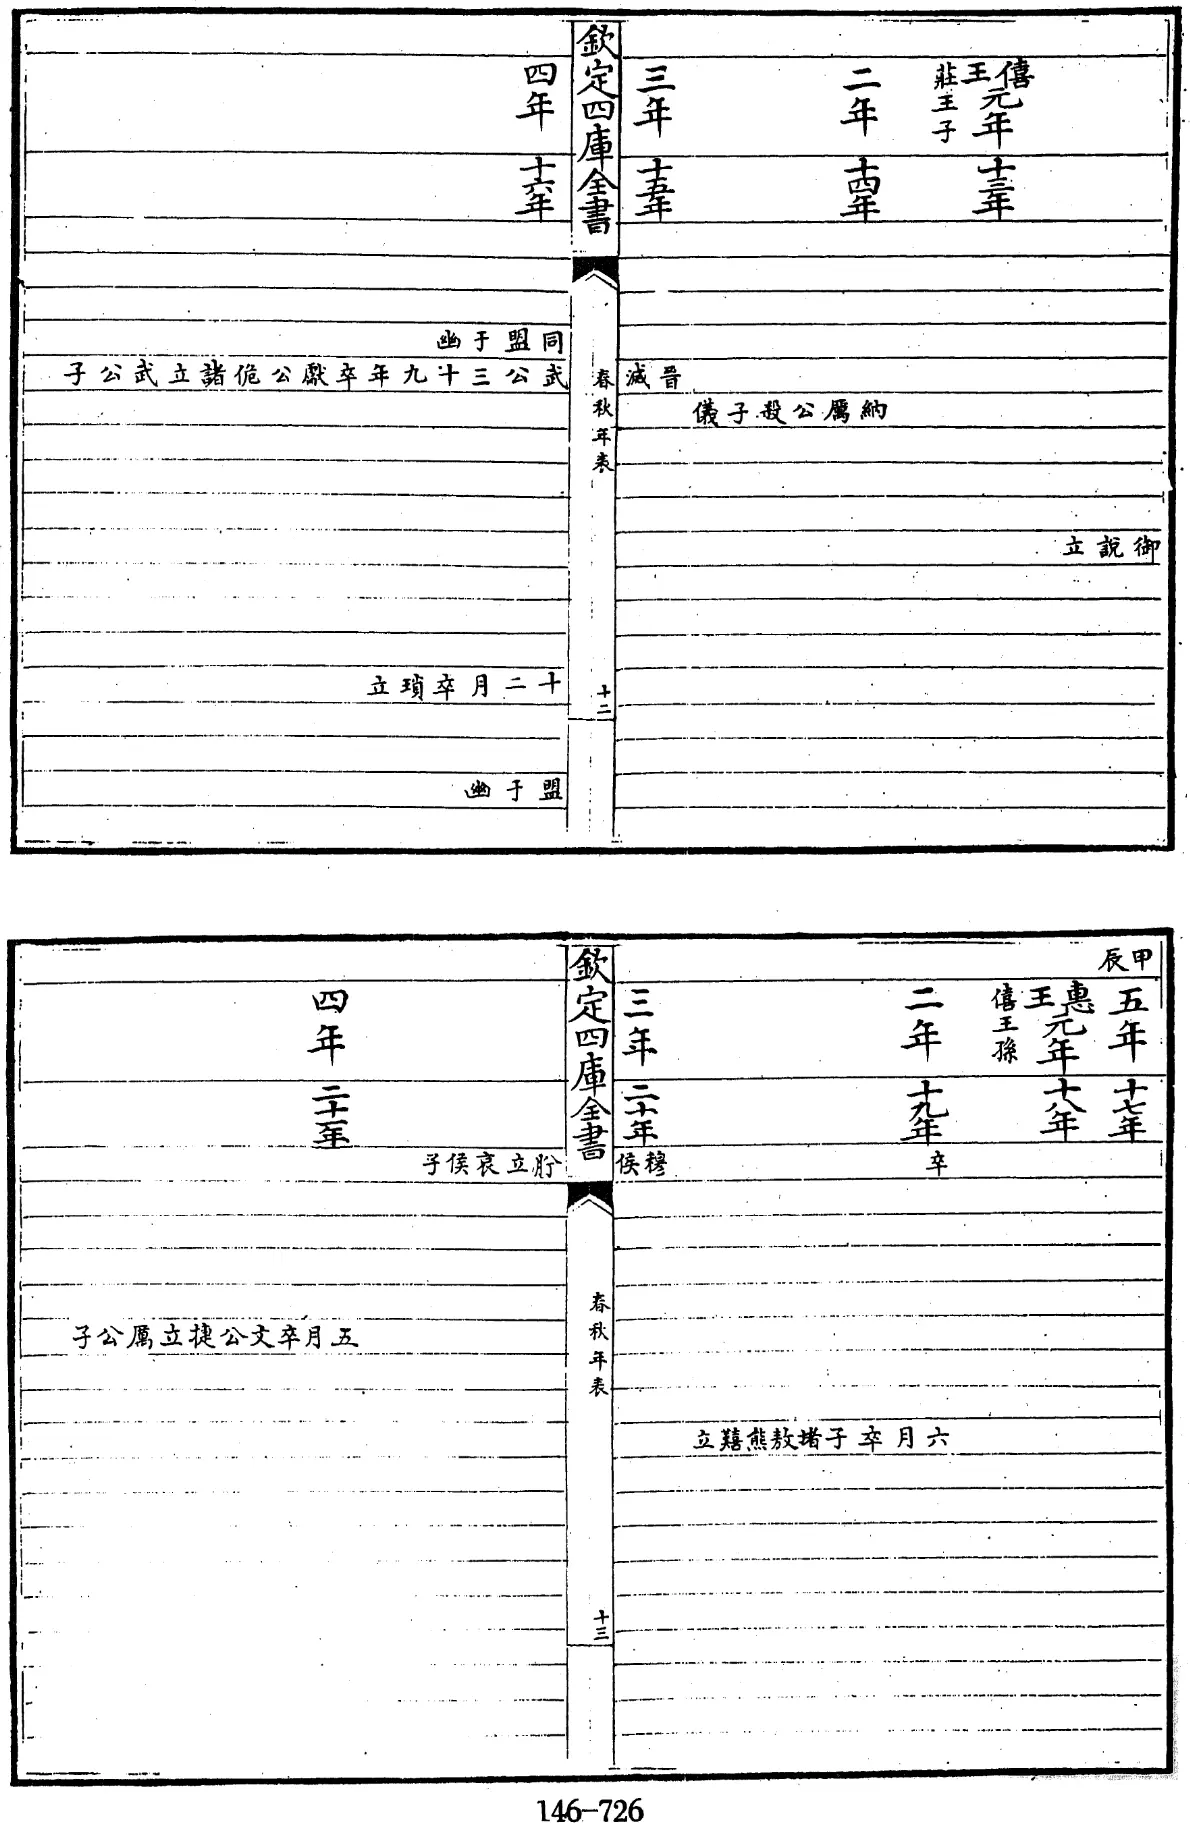 僖王元年
莊王子
二年
三年
十三年
十四年
十五年
晉滅
納厲公殺子儀
御說立
欽定四庫全書
春秋年表
十二
四年
十六年
同盟于幽
武公三十九年卒獻公佹諸立武公子
十二月卒瑣立
盟于幽
甲辰
五年
惠王元年
僖王孫
二年
三年
十七年
十八年
十九年
二十年
卒
穆侯
六月卒子堵敖熊囏立
欽定四庫全書
春秋年表
十三
四年
二十一年
肸立哀侯子
五月卒文公捷立厲公子
146-726